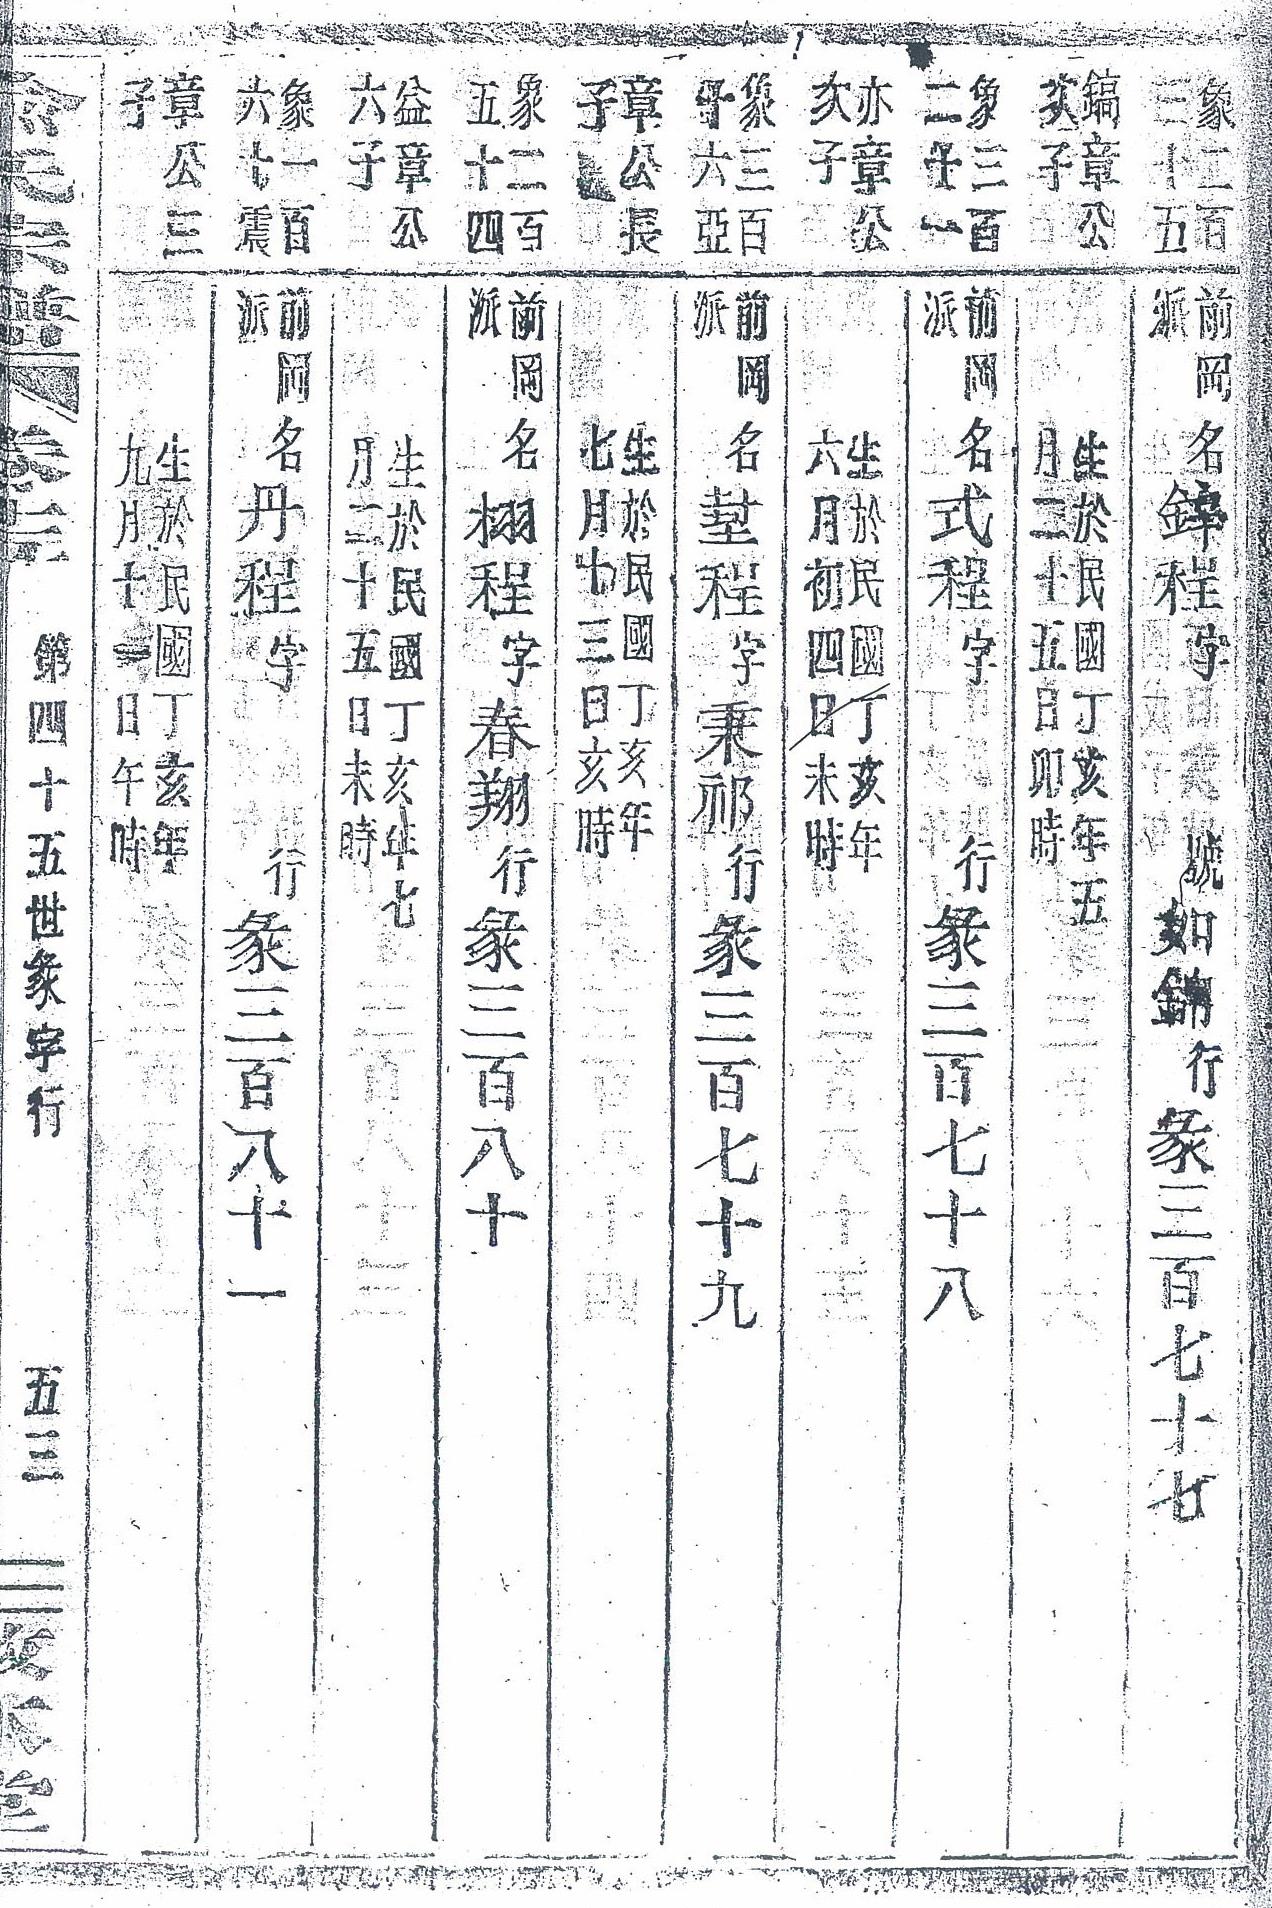 象二百三十五
前岡派
名鋅程字 號如錦行彖三百七十七
鎬章公次子
生於民國丁亥年五月二十五日卯時
象三百二十一
前岡派
名式程字 行彖三百七十八
亦章公次子
生於民國丁亥年六月初四日未時
象三百
六亞
前岡派
名塹程字秉祁行彖三百七十九
章公長子
生於民國丁亥年七月十三日亥時
象二百五十四
前岡派
名栩程字春翔行彖三百八十
益章公六子
生於民國丁亥年七月二十五日未時
象一百六七震
前岡派
名丹程字 行彖三百八十一
章公三子
生於民國丁亥年九月十一日午時
卷三
第四十五世彖字行
五三